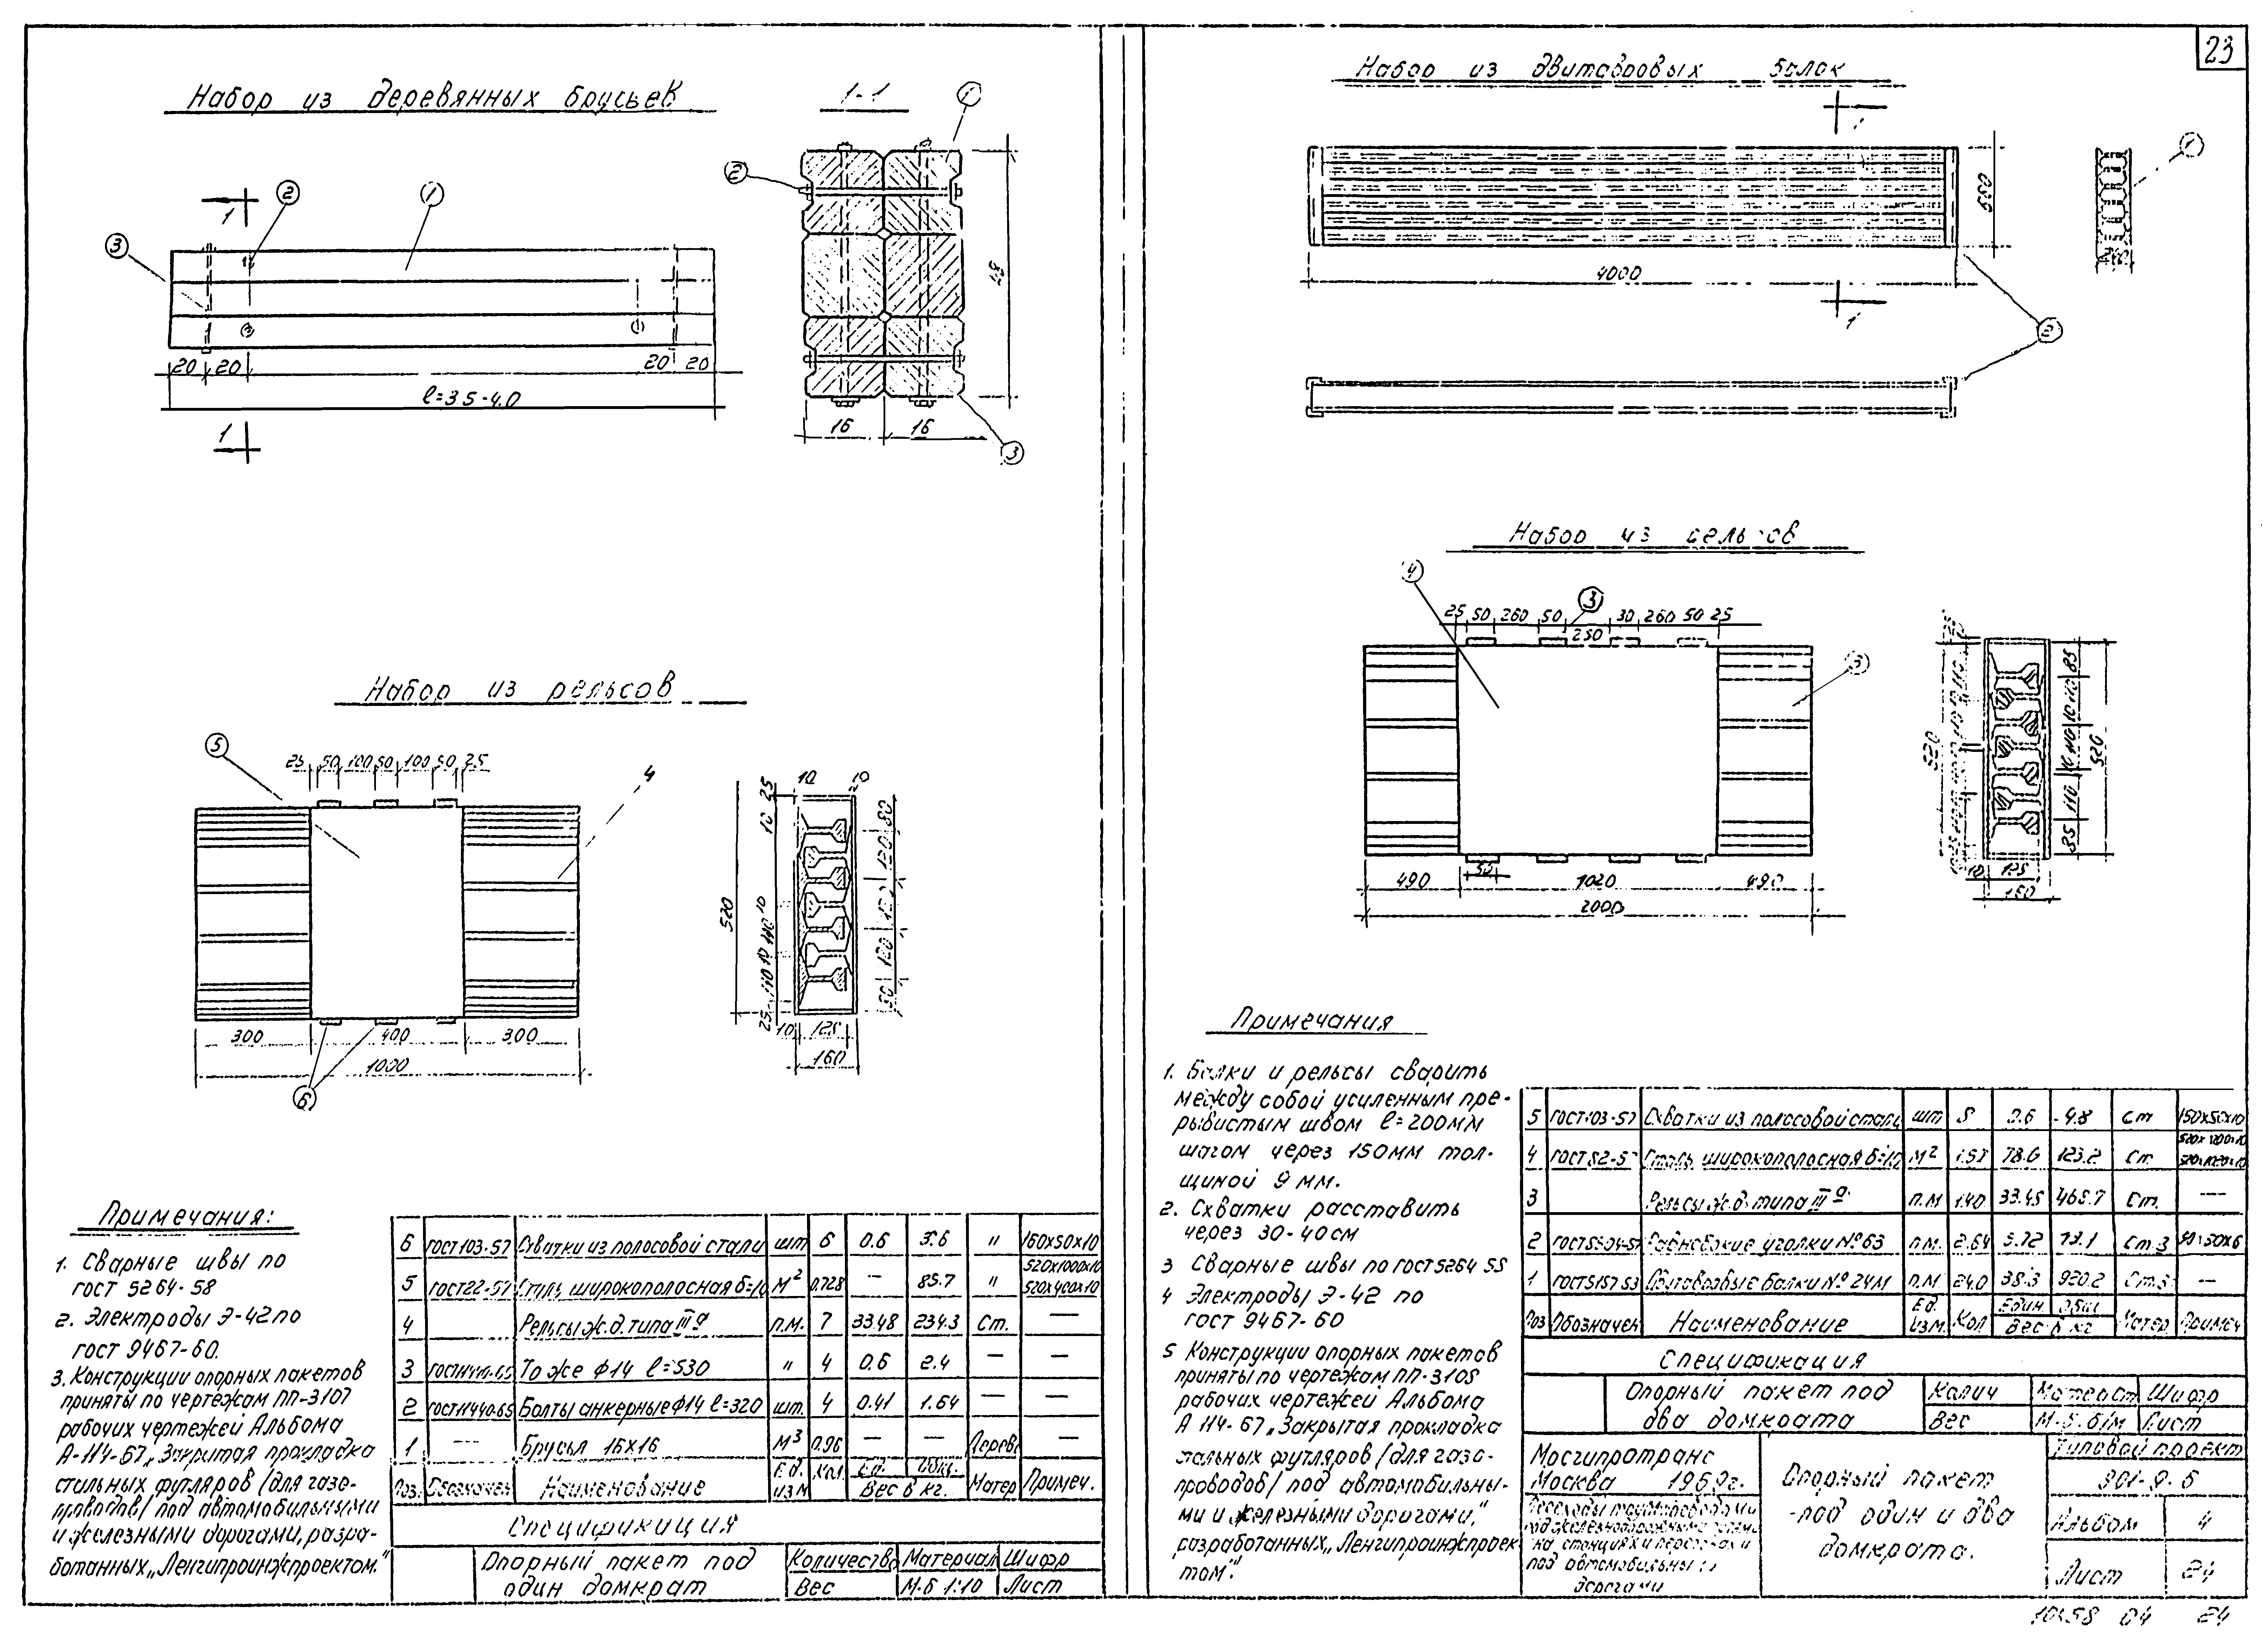 23
Набор из деревянных брусьев
1-1
1
2
1
2
1
3
20 20
20 20
ℓ=3.5-4.0
1
16 16
3
Набор из двутавровых балок
1
4000
2
Набор из рельсов
5
25 50 100 50 100 50 25
4
10 10
520
300 400 300
1000
6
10 125
160
Набор из рельсов
4
3
25 50 260 50 250 30 260 50 25
3
50
490 1020 490
2000
520
10 125
Примечания:
1. Сварные швы по
гост 5264-58
2. Электроды Э-42 по
гост 9467-60.
3. Конструкции опорных пакетов
приняты по чертежам ПП-3107
рабочих чертежей Альбома
А-114-67 „Закрытая прокладка
стальных футляров /для газо-
проводов/ под автомобильными
и железными дорогами, разра-
ботанных „Ленгипроинжпроектом."
6 ГОСТ103-57 Схватки из полосовой стали шт 6 0.6 3.6 " 160х50х10
5 ГОСТ22-57 Сталь широкополосная δ=10 м² 0.728 — 85.7 " 520х1000х10 520х400х10
4 Рельсы ж.д. типа III а п.м. 7 33.48 234.3 Ст. —
3 То же ф14 ℓ=530 " 4 0.6 2.4 — —
2 ГОСТ11440-65 Болты анкерные ф14 ℓ=320 шт. 4 0.41 1.64 — —
1 — Брусья 16х16 м³ 0.96 — — Дерев. —
Поз. Обозначен Наименование Ед. изм Кол. Ед. Общ. Вес в кг. Матер Примеч.
Спецификация
Опорный пакет под
один домкрат
Количество Материал Шифр
Вес М-б 1:10 Лист
Примечания
1. Балки и рельсы сварить
между собой усиленным пре-
рывистым швом ℓ=200мм
шагом через 150мм тол-
щиной 9 мм.
2. Схватки расставить
через 30-40см
3 Сварные швы по гост 5264 58
4 Электроды Э-42 по
гост 9467-60
5 Конструкции опорных пакетов
приняты по чертежам ПП-3108
рабочих чертежей Альбома
А 114-67 „Закрытая прокладка
стальных футляров /для газо-
проводов/ под автомобильны-
ми и железными дорогами,"
разработанных „Ленгипроинжпроек
том".
5 ГОСТ103-57 Схватки из полосовой стали шт 8 0.6 4.8 Ст 150х50х10
4 Сталь широкополосная δ=10 м² 1.57 78.6 123.2 Ст.
3 Рельсы ж.д. типа III а п.м 14.0 33.48 468.7 Ст. —
2 Равнобокие уголки № 63 п.м. 2.64 Ст.3
1 Двутавровые балки № 24М п.м 24.0 38.3 920.2 Ст.3 —
Поз Обозначен Наименование Ед. изм. Кол Един Общ Вес в кг Матер Примеч
Спецификация
Опорный пакет под
два домкрата
Колич Материал Шифр
Вес М-б б/м Лист
Мосгипротранс
Москва 1969г.
Переходы трубопроводами
под железнодорожными путями
на станциях и перегонах и
под автомобильными
дорогами
Опорный пакет
-под один и два
домкрата.
Типовой проект
901-9-6
Альбом 4
Лист 24
04 24